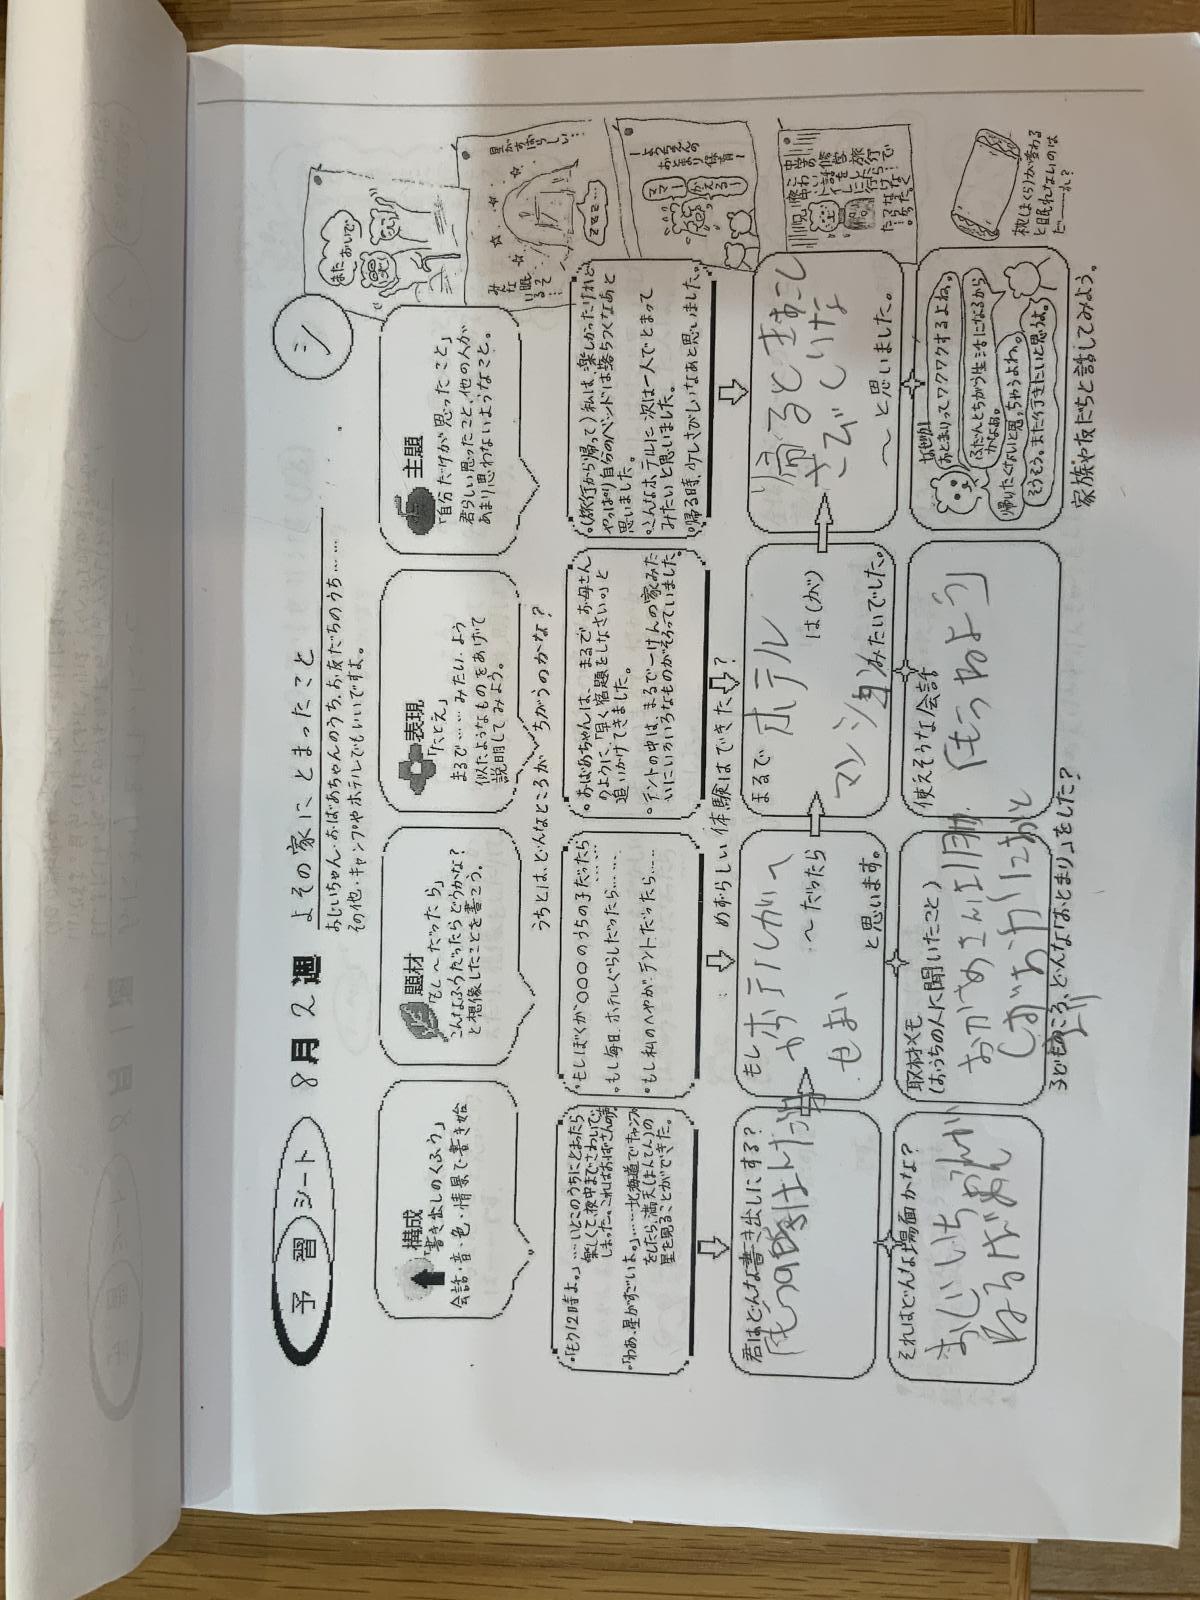 予習シート
8月2週
よその家にとまったこと
シ
おじいちゃん・おばあちゃんのうち、お友だちのうち……
その他・キャンプやホテルでもいいですよ。
構成
「書き出しのくふう」
会話・音・色・情景で書き始
題材
「もし〜だったら」
こんなふうだったらどうかな?
と想像したことを書こう。
表現
「たとえ」
まるで……みたい、よう
似たようなものをあげて
説明してみよう。
主題
「自分だけが思ったこと」
君らしい思ったこと、他の人が
あまり思わないようなこと。
うちとは、どんなところがちがうのかな?
。「もう12時よ。」…いとこのうちにとまったら
楽しくて、夜中までさわいで
しまった。これはおばさんの声
。「わあ、星がすごいよ。」……北海道でキャンプ
をしたら、満天(まんてん)の
星を見ることができた。
。もしぼくが〇〇〇のうちの子だったら
。もし毎日、ホテルぐらしだったら……
。もし私のへやがテントだったら……
。おばあちゃんは、まるで、お母さん
のように、「早く宿題をしなさい。」と
追いかけてきました。
。テントの中は、まるで一けんの家みた
いにいろいろなものがそろっていました。
。(旅行から帰って)私は、楽しかったけれど
やっぱり自分のベッドは落ちつくなあと
思いました。
。こんなホテルに次は一人でとまって
みたいと思いました。
。帰る時、少しさびしいなあと思いました。
めずらしい体験はできた?
君はどんな書き出しにする?
もし ホテルがへ
や
〜だったら
せまい
と思います。
まるで ホテル
は(が)
マンション
みたいでした。
帰るときすこし
さびしいな
〜と思いました。
それはどんな場面かな?
おじいちゃんが
ねるばめん
取材メモ
(おうちの人に聞いたこと)
使えそうな会話
「もうねよう」
なぜか
おとまりってワクワクするよね。
ふだんとちがう生活になるから
かなあ。
帰りたくないと思っちゃうよね。
そうそう。また行きたいと思うよ。
子どものころ、どんな「おとまり」をした?
家族や友だちと話してみよう。
また おいで
星がすばらしい…
みんな眠ってる…
ZZZ…
ようちえんの
おとまり保育
ママー
かえるー
枕(まくら)が変わる
と眠れないのは
だーーれ?